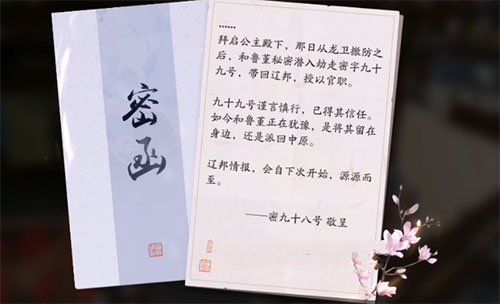 密函
……
拜启公主殿下，那日从龙卫撤防之
后，和鲁堇秘密潜入劫走密字九十
九号，带回辽邦，授以官职。
九十九号谨言慎行，已得其信任。
如今和鲁堇正在犹豫，是将其留在
身边，还是派回中原。
辽邦情报，会自下次开始，源源而
至。
——密九十八号 敬呈